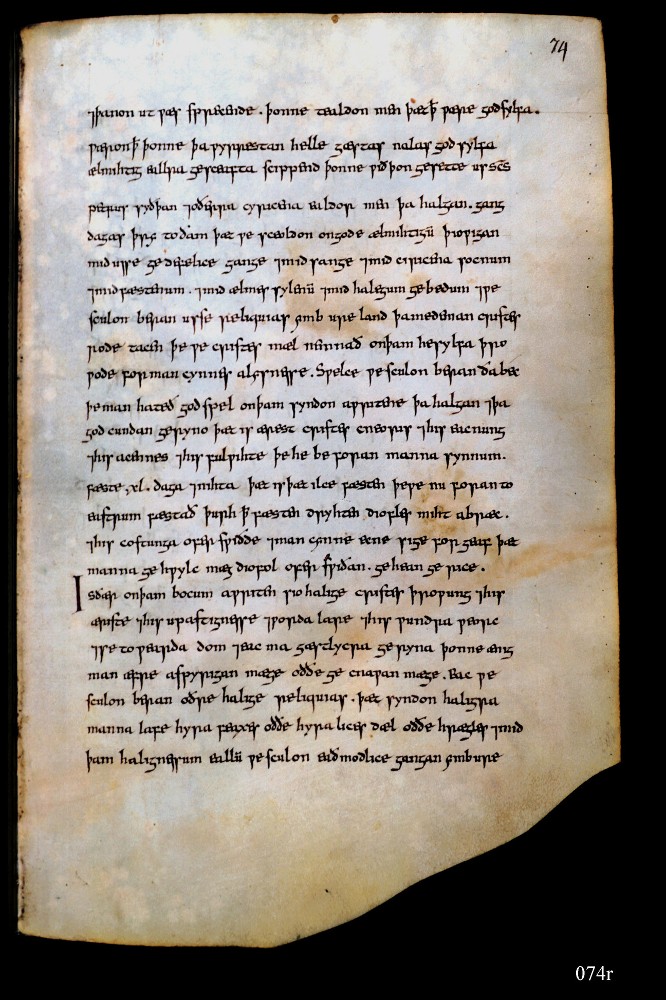 ⁊þanon ut ƿæs sprecende. þonne tealdon men þæt ꝥ ƿære god sylfa.
ƿæron ꝥ þonne þa ƿyrrestan helle gæstas nalas god sylfa
ælmihtig eallra gesceafta scippend þonne ƿið þon gesette us scs
petrus syðþan ⁊ oðerra cyricena ealdor men þa halgan. gang
dagas þry. to ðam þæt ƿe sceoldon on gode ælmihtigū þioƿigan
mid usse gedefelice gange ⁊mid sange ⁊mid ciricena socnum
⁊mid fæstenum. ⁊mid ælmes sylenū ⁊mid halegum gebedum ⁊ƿe
sculon beran usse reliquias ymb ure land þa medeman cristes
rode tacen þe ƿe cristes mæl nemnað on þam he sylfa þro
ƿode for man cynnes alysnesse. Sƿelce ƿe sculon beran ða bec
þe man hateð godspel on þam syndon aƿritene þa halgan ⁊þa
godcundan geryno þæt is ærest cristes cneoris ⁊his eacnung
⁊his acennes ⁊his fulƿihte þe he be foran manna synnum.
fæste .xl. daga ⁊nihta þæt is þæt ilce fæsten þe ƿe nu foran to
eastrum fæstað þurh ꝥ fæsten dryhten diofles miht abræc.
⁊his costunga ofer sƿiðde ⁊man cynne ece sige for geaf þæt
manna ge hƿylc mæg diofol ofer sƿiðan. ge hean ge rice.
Is ðær on þam bocum aƿriten sio halige cristes þroƿung ⁊his
æriste ⁊his upastignesse ⁊ƿorda lare ⁊his ƿundra ƿeorc
⁊se toƿearda dom ⁊eac ma gæstlycra geryna þonne æng
man æfre aspyrigan mæge oððe ge cnaƿan mæge. Eac ƿe
sculon beran oðre halige reliquias. þæt syndon haligra
manna lafe hyra feaxes oððe hyra lices dæl oððe hrægles ⁊mid
þam halignessum eallū ƿe sculon eaðmodlice gangan ymb ure
74
074r